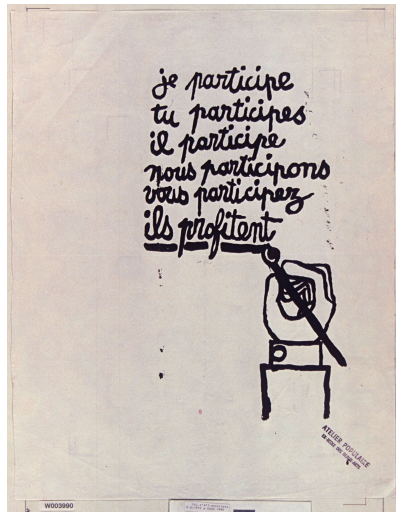 je participe
tu participes
il participe
nous participons
vous participez
ils profitent
ATELIER POPULAIRE
W003990